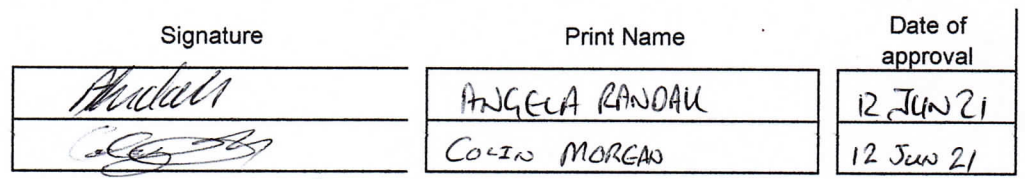 Signature Print Name Date of approval
ANGELA RANDALL 12 JUN 21
COLIN MORGAN 12 JUN 21